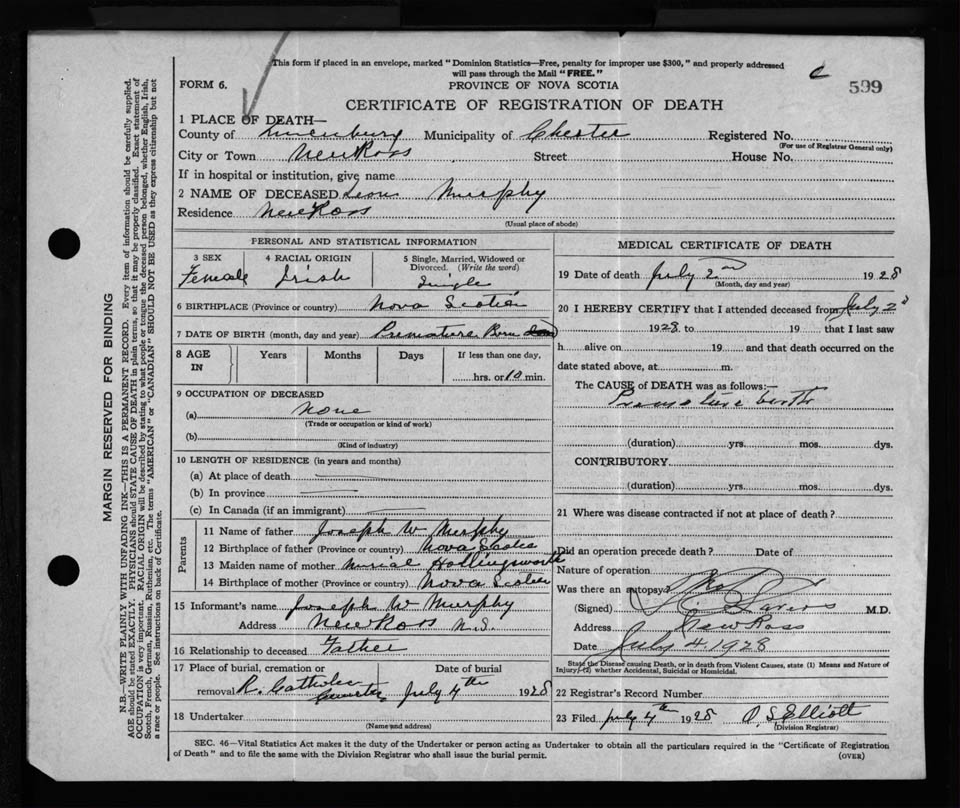 This form if placed in an envelope, marked "Dominion Statistics—Free, penalty for improper use $300," and properly addressed
will pass through the Mail "FREE."
FORM 6.
PROVINCE OF NOVA SCOTIA
599
CERTIFICATE OF REGISTRATION OF DEATH
1 PLACE OF DEATH—
County of Lunenburg Municipality of Chester Registered No.
(For use of Registrar General only)
City or Town New Ross Street House No.
If in hospital or institution, give name
2 NAME OF DECEASED Leon Murphy
Residence New Ross
(Usual place of abode)
PERSONAL AND STATISTICAL INFORMATION
3 SEX 4 RACIAL ORIGIN 5 Single, Married, Widowed or
Divorced. (Write the word)
Female Irish Single
6 BIRTHPLACE (Province or country) Nova Scotia
7 DATE OF BIRTH (month, day and year) Premature Born
8 AGE IN Years Months Days If less than one day,
hrs. or 10 min.
9 OCCUPATION OF DECEASED
(a) None
(Trade or occupation or kind of work)
(b)
(Kind of industry)
10 LENGTH OF RESIDENCE (in years and months)
(a) At place of death
(b) In province
(c) In Canada (if an immigrant)
Parents
11 Name of father Joseph W Murphy
12 Birthplace of father (Province or country) Nova Scotia
13 Maiden name of mother Murial Hollingsworth
14 Birthplace of mother (Province or country) Nova Scotia
15 Informant's name Joseph W Murphy
Address New Ross N.S.
16 Relationship to deceased Father
17 Place of burial, cremation or Date of burial
removal R. Catholic July 4th 1928
18 Undertaker
(Name and address)
MEDICAL CERTIFICATE OF DEATH
19 Date of death July 2nd 1928
(Month, day and year)
20 I HEREBY CERTIFY that I attended deceased from July 2d
1928 to 19 that I last saw
h alive on 19 and that death occurred on the
date stated above, at m.
The CAUSE of DEATH was as follows:—
Premature birth
(duration) yrs. mos. dys.
CONTRIBUTORY
(duration) yrs. mos. dys.
21 Where was disease contracted if not at place of death?
Did an operation precede death? Date of
Nature of operation
Was there an autopsy? No
(Signed) M.D.
Address New Ross
Date July 4. 1928
State the Disease causing Death, or in death from Violent Causes, state (1) Means and Nature of
Injury (2) whether Accidental, Suicidal or Homicidal.
22 Registrar's Record Number
23 Filed July 4th 1928 O. S. Elliott
(Division Registrar)
SEC. 46—Vital Statistics Act makes it the duty of the Undertaker or person acting as Undertaker to obtain all the particulars required in the "Certificate of Registration
of Death" and to file the same with the Division Registrar who shall issue the burial permit.
(OVER)
MARGIN RESERVED FOR BINDING
N.B.—WRITE PLAINLY WITH UNFADING INK—THIS IS A PERMANENT RECORD. Every item of information should be carefully supplied.
AGE should be stated EXACTLY. PHYSICIANS should STATE CAUSE OF DEATH in plain terms, so that it may be properly classified. Exact statement of
OCCUPATION is very important. RACIAL ORIGIN will be described by stating to what people or tongue the deceased person belonged, whether English, Irish,
Scotch, French, German, Russian, Ruthenian, etc. The terms "AMERICAN" or "CANADIAN" SHOULD NOT BE USED as they express citizenship but not
a race or people. See instructions on back of Certificate.